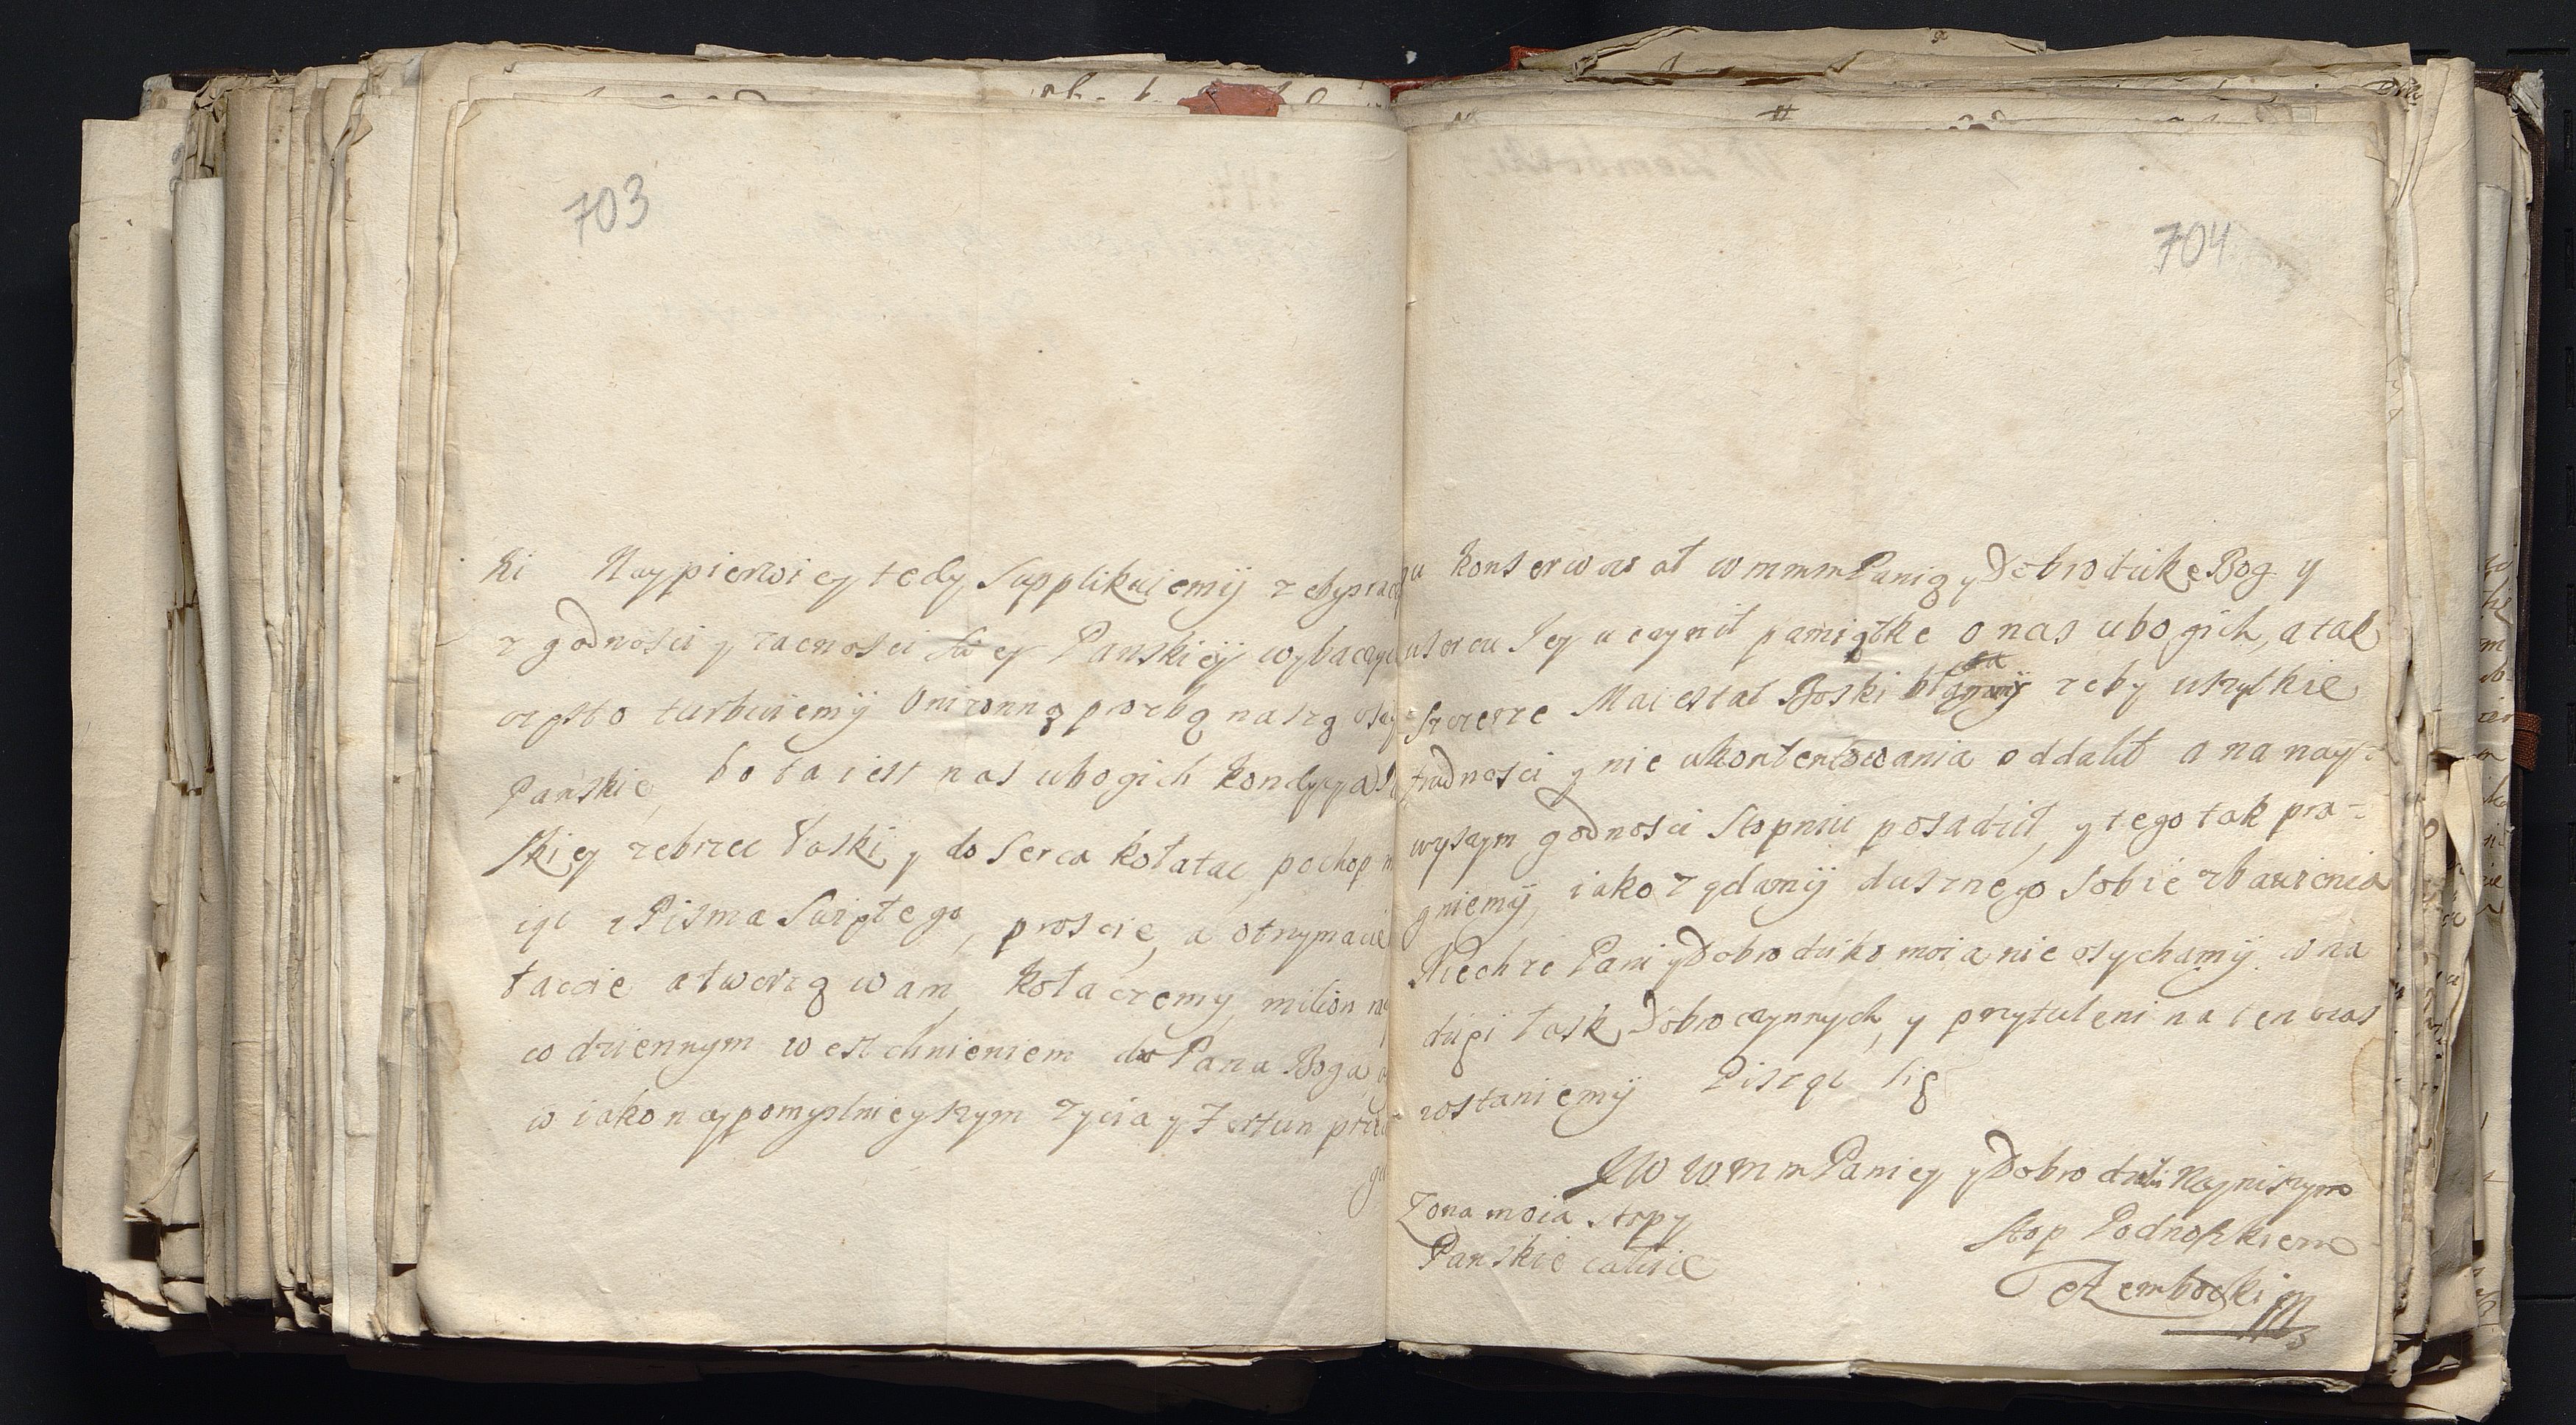 703
ki Naypierwiey tedy Supplikuiemÿ zebysrac
z godnosci y zacnosci Swey Panskieÿ wybaczyc
czesto turbuiemÿ Unizonną prozbą naszą uszy
Panskie, bo ta iest nas ubogich kondycya
skiey zebrzec łaski, y do Serca kołatac, pochop
iąc z Pisma Swiętego, proscie, a otrzymacie
taccie a tworzą wam, kołaczemy, milion
codziennym westchnieniem do Pana Boga,
w iako naypomyslnieyszym zycia y Fortun
gu
704
gu konserwował wmmmPanią y DobrodzikęBog y
w sercu Jey uczynił pamiątke o nas ubogich, a tak
Szczerze Maiestat Boski zeby wszytkie
trudnosci y nie ukontentowania oddalił a na nay-
wyszym godnosci Stopniu posadził, y tego tak pra-
gniemÿ, iako ządamÿ dusznego Sobie zbawienia
Niech ze Pani y Dobrodziko moia nie osychamÿ w na
dziei łask Dobroczynnych, y przytuleni na ten czas
zostaniemÿ Pisząc się
JW WMmPaniey y Dobrodziki Naynizszym
Stop Podnoszkiem
Zembocki
Zona moia stopy
Panskie całuie